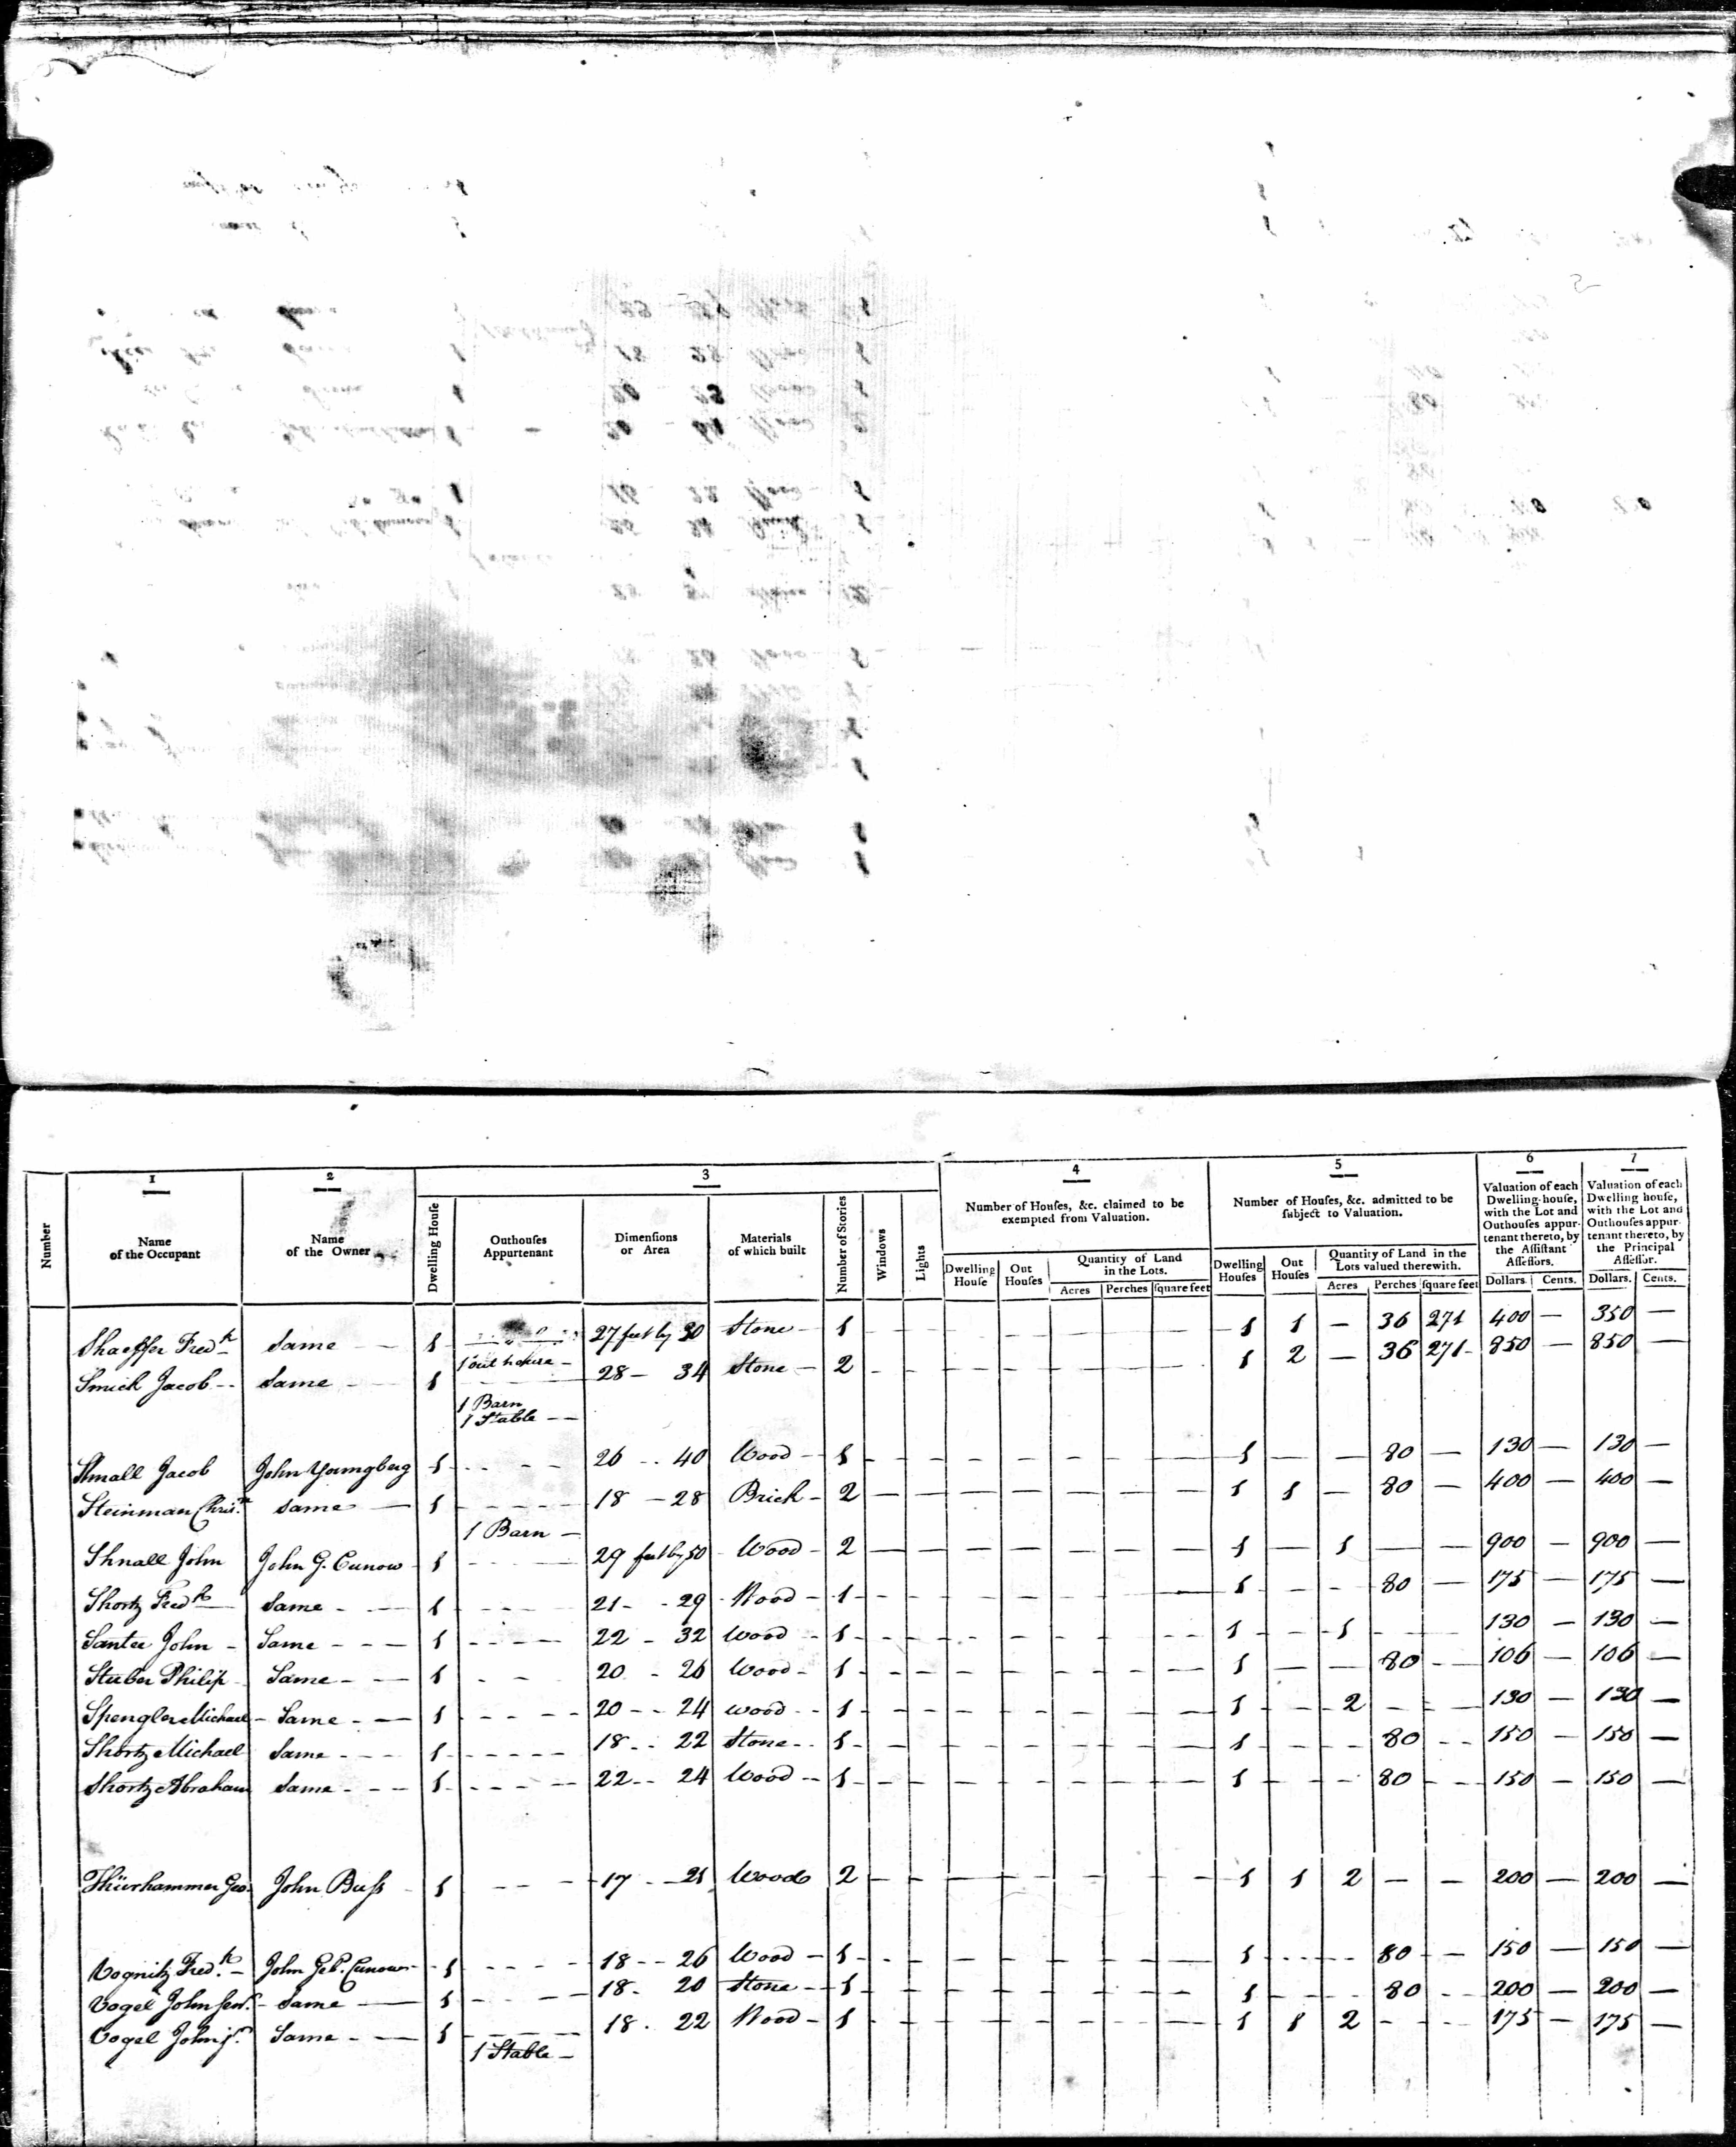 1 2 3 4 5 6 7
Number
Name of the Occupant
Name of the Owner
Dwelling Houſe
Outhouſes Appurtenant
Dimenſions or Area
Materials of which built
Number of Stories
Windows
Lights
Number of Houſes, &c. claimed to be exempted from Valuation.
Dwelling Houſe
Out Houſes
Quantity of Land in the Lots.
Acres Perches ſquare feet
Number of Houſes, &c. admitted to be ſubject to Valuation.
Dwelling Houſes
Out Houſes
Quantity of Land in the Lots valued therewith.
Acres Perches ſquare feet
Valuation of each Dwelling-houſe, with the Lot and Outhouſes appurtenant thereto, by the Aſſiſtant Aſſeſſors.
Dollars. Cents.
Valuation of each Dwelling houſe, with the Lot and Outhouſes appurtenant thereto, by the Principal Aſſeſſor.
Dollars. Cents.
Shaeffer Fredk Same 1 27 feet by 30 Stone 1 1 1 — 36 271 400 — 350 —
1 out house
Smick Jacob Same 1 28 - 34 Stone 2 1 2 — 36 271 850 — 850 —
1 Barn
1 Stable
Shnall Jacob John Youngberg 1 26 - 40 Wood 1 1 — — 80 — 130 — 130 —
Steinman Chrisn Same 1 18 - 28 Brick 2 1 1 — 80 — 400 — 400 —
1 Barn
Shnall John John G. Cunow 1 29 feet by 50 Wood 2 1 — 1 — — 900 — 900 —
Shortz Fredk Same 1 21 - 29 Wood 1 1 - - 80 — 175 — 175 —
Santee John Same 1 22 - 32 Wood 1 1 - 1 - - 130 — 130 —
Stuber Philip Same 1 20 - 26 Wood 1 1 — — 80 — 106 — 106 —
Spengler Michael Same 1 20 - 24 wood 1 1 - 2 - - 130 — 130 —
Shortz Michael Same 1 18 - 22 Stone 1 1 - - 80 - 150 — 150 —
Shortz Abraham Same 1 22 - 24 Wood 1 1 - - 80 - 150 — 150 —
Thürhammer Geo. John Buss 1 17 - 21 Wood 2 1 1 2 — — 200 — 200 —
Vognitz Fredk John Geb. Cunow 1 18 - 26 Wood 1 1 - - 80 — 150 — 150 —
Vogel John senr. Same 1 18 - 20 Stone 1 1 - - 80 - 200 — 200 —
Vogel John jr. Same 1 18 - 22 Wood 1 1 1 2 - - 175 — 175 —
1 Stable